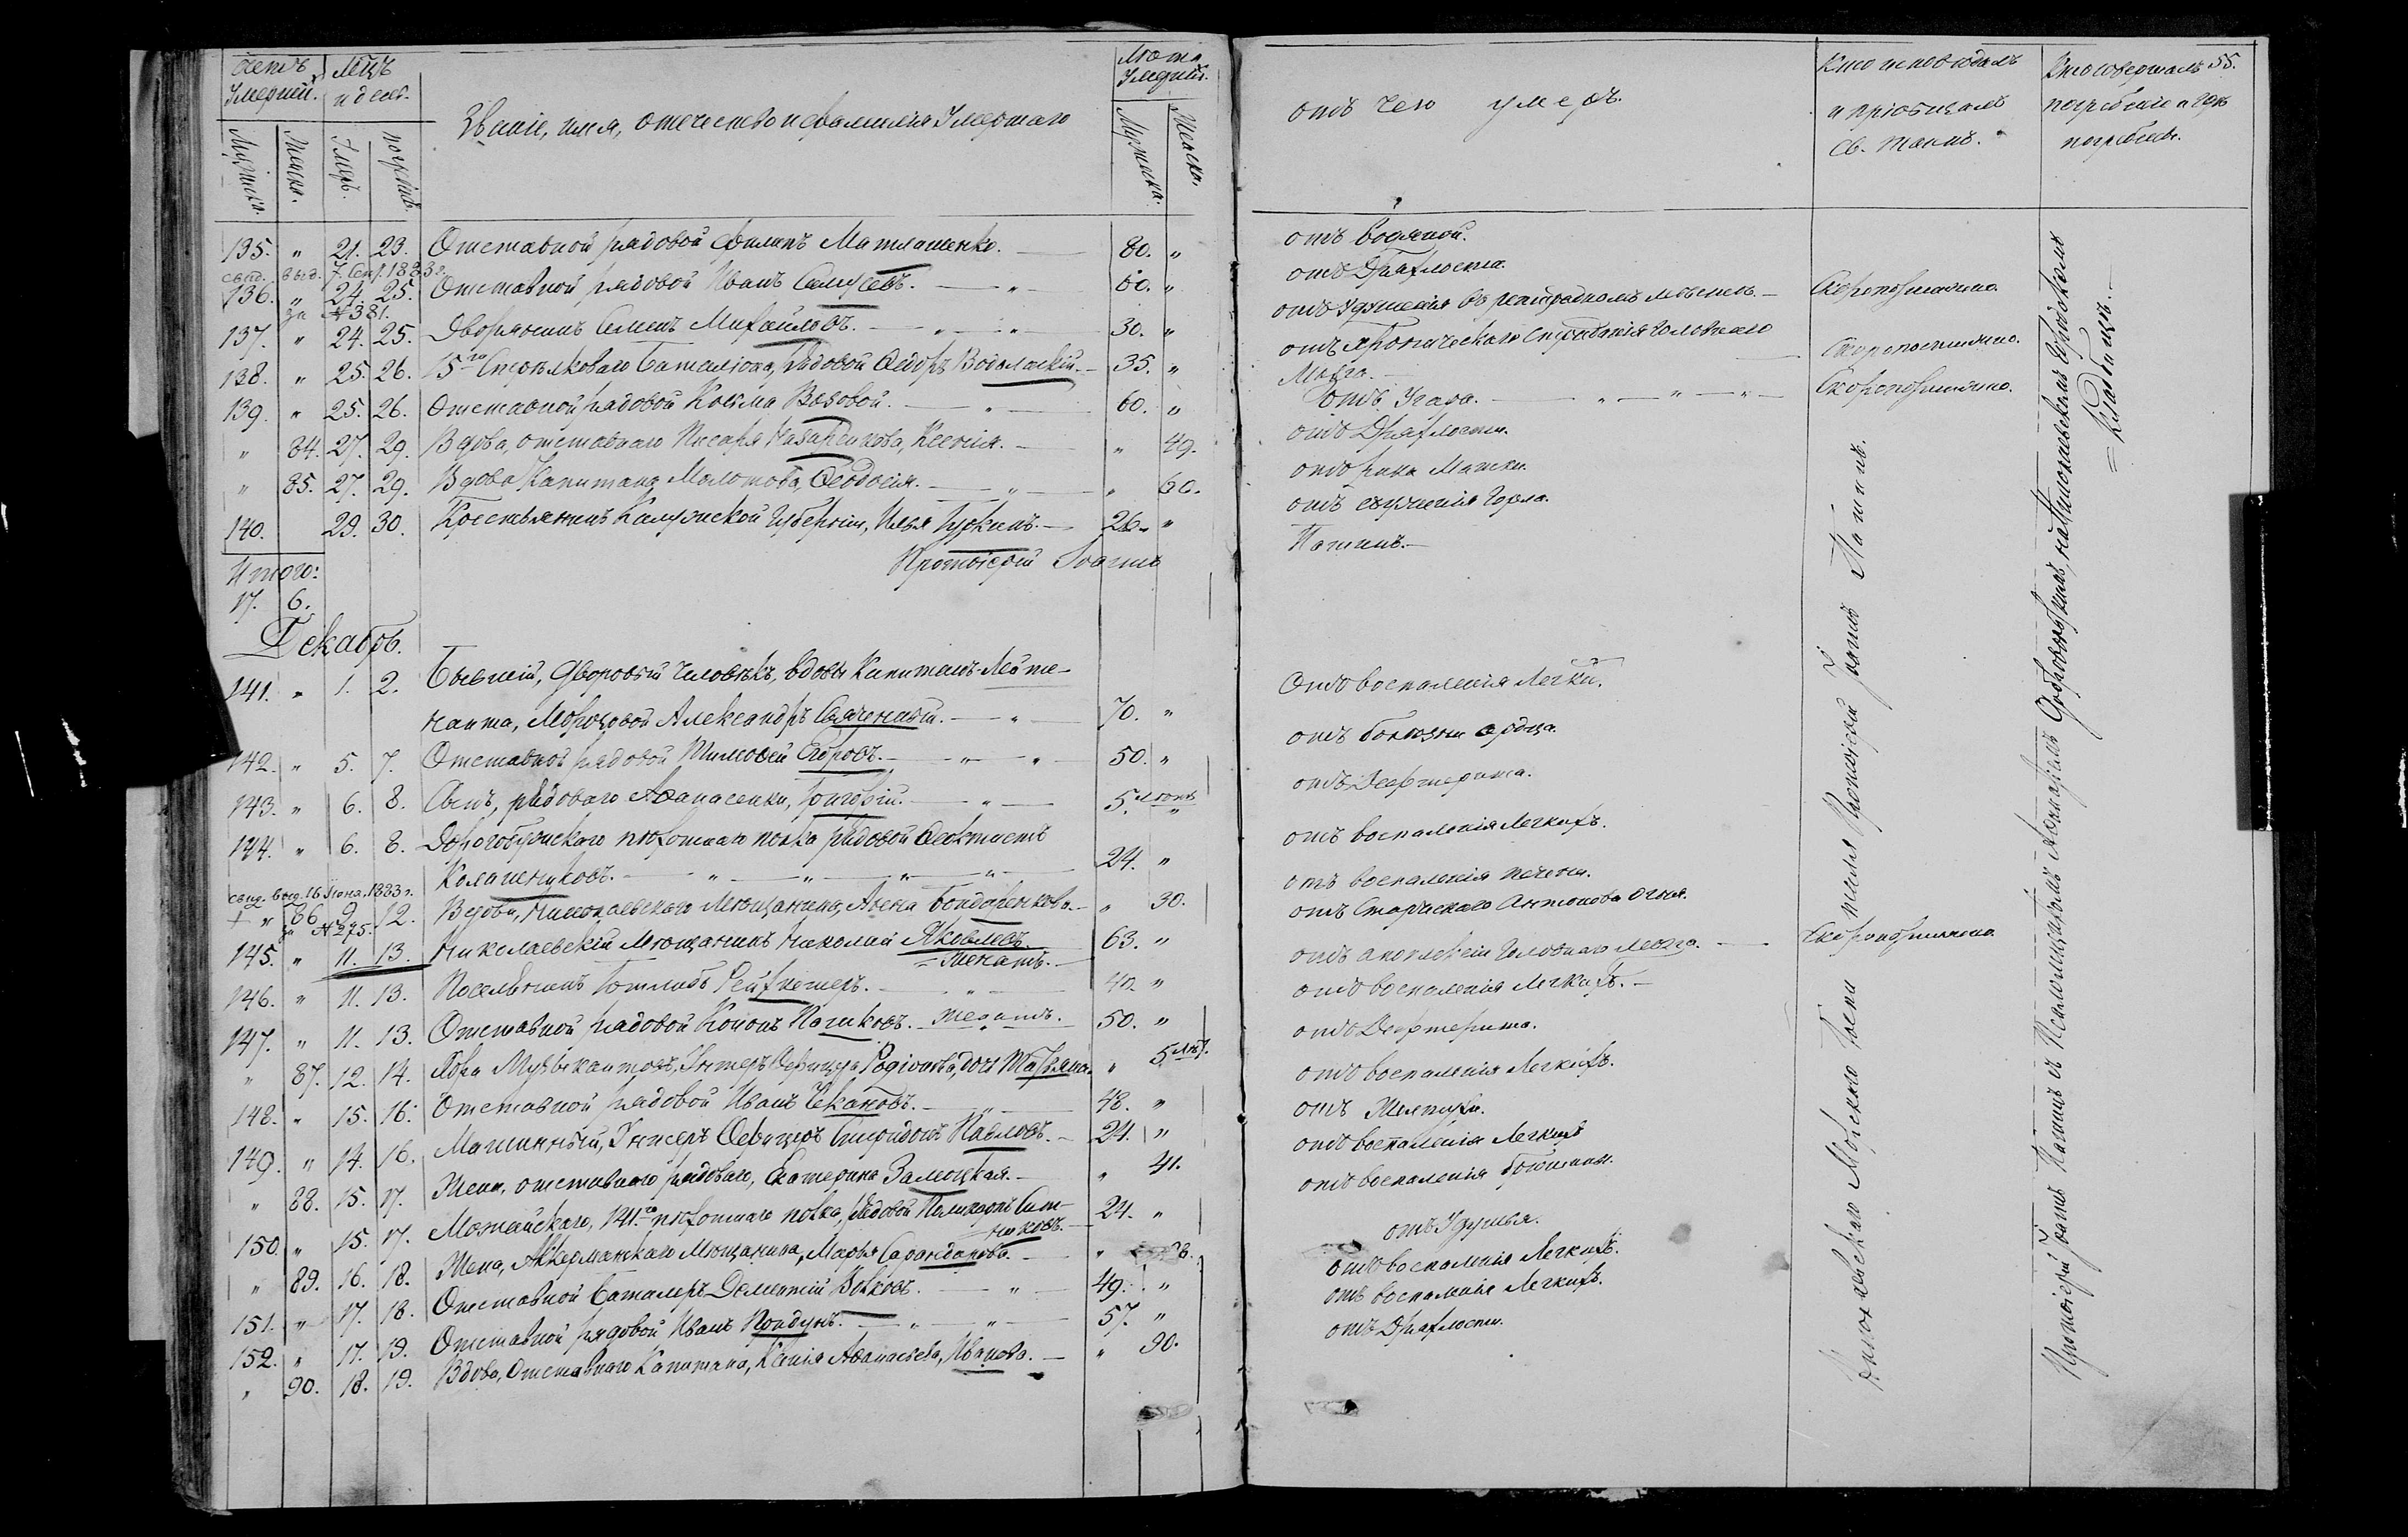 Счетъ Умершихъ.
Мѣцъ и день.
Званіе, имя, отечество и фамилія Умершаго
Лѣта Умерш.
Мужеска.
Женска.
Умеръ.
погребенъ.
Мужеска.
Женска.
135. " 21. 23. Отставной рядовой Филипъ Матляшенко. — 80. "
свид. выд. 7. Сен. 1883 г.
136. " 24. 25. Отставной рядовой Иванъ — " — 60. "
за № 381.
137. " 24. 25. Дворянинъ Семенъ Михайловъ. — " — " — 30. "
138. " 25. 26. 15го Стрѣлковаго Баталіона, рядовой Ѳедоръ — 35. "
139. " 25. 26. Отставной рядовой Козьма Возовой. — " — 60. "
" 84. 27. 29. Вдова, отставнаго Писаря Ксенія. — " 49.
" 85. 27. 29. Вдова Капитана Молотова, Ѳеодосія. — " — " 60.
140. 29. 30. Крестьянинъ Калужской Губерніи, Илья — 26. "
Протоіерей Іоаннъ
Итого:
17. 6.
Декабрь.
141. " 1. 2. Бывшій, Дворовый человѣкъ, вдовы Капитанъ-Лейте-
нанта, Александръ — " — 70. "
142. " 5. 7. Отставной рядовой Тимофей Егоровъ. — " — " — 50. "
143. " 6. 8. Сынъ, рядоваго Аѳанасенки, Григорій. — " — 5. лѣтъ "
144. " 6. 8. Дорогобужскаго пѣхотнаго полка рядовой Ѳеоктистъ
— " — " — " — " — 24. "
свид. выд. 16 Іюня. 1883 г.
+ " 86. 9. 12. Вдова, Николаевскаго Мѣщанина, Анна Бондаренкова. — " 30.
за № 275.
145. " 11. 13. Николаевскій Мѣщанинъ Николай Яковлевъ. — 63. "
= Женатъ. —
146. " 11. 13. Поселянинъ Готлибъ — " — 42 "
147. " 11. 13. Отставной рядовой Кононъ Женатъ. 50. "
" 87. 12. 14. Хора Музыкантовъ, Унтеръ Офицера Родіонова, дочь Татьяна. " 5 лѣт.
148. " 15. 16. Отставной рядовой Иванъ Чекановъ. — " — 48. "
149. " 14. 16. Машинный, Унтеръ Офицеръ Спиридонъ Павловъ. — 24. "
" 88. 15. 17. Жена, отставнаго рядоваго, Екатерина — " 41.
150. " 15. 17. Можайскаго, 141.го пѣхотнаго полка, рядовой Поликарпъ Сит-
никовъ. — 24. "
" 89. 16. 18. Жена, Аккерманскаго Мѣщанина, Марья — "
151. " 17. 18. Отставной Баталеръ Дементій Волковъ. — " — 49. "
152. " 17. 19. Отставной рядовой Иванъ — " — " — 57. "
" 90. 18. 19. Вдова, Отставнаго Капитана, Ксенія Аѳанасьева, Иванова. — " 90.
отъ чего умеръ.
Кто исповѣдалъ и пріобщалъ Св. Таинъ.
Кто совершалъ погребеніе и гдѣ погребены.
55.
отъ водяной.
отъ Дряхлости.
отъ Удушенія въ мѣстѣ. — Скоропостижно.
отъ Хроническаго Страданія головнаго
Мозга. — Скоропостижно.
отъ Угара. — " — " — " — Скоропостижно.
отъ Дряхлости.
отъ рака Матки.
отъ съуженія Горла.
Патинъ. —
Отъ воспаленія Легкихъ.
отъ болѣзни сердца.
отъ Дифтерита.
отъ воспаленія Легкихъ.
отъ воспаленія печени.
отъ Старческаго Антонова Огня.
отъ апоплексіи Головнаго Мозга. — Скоропостижно.
отъ воспаленія Легкихъ. —
отъ Дифтерита.
отъ воспаленія Легкихъ.
отъ Желтухи.
отъ воспаленія Легкихъ
отъ воспаленія брюшины.
отъ Удушья.
отъ воспаленія Легкихъ.
отъ воспаленія Легкихъ.
отъ Дряхлости.
Николаевскаго Морскаго Протоіерей Іоаннъ Патинъ.
Протоіерей Іоаннъ Патинъ съ Псаломщикомъ Добровольскимъ, на Николаевскомъ Городскомъ
= Кладбищѣ. —